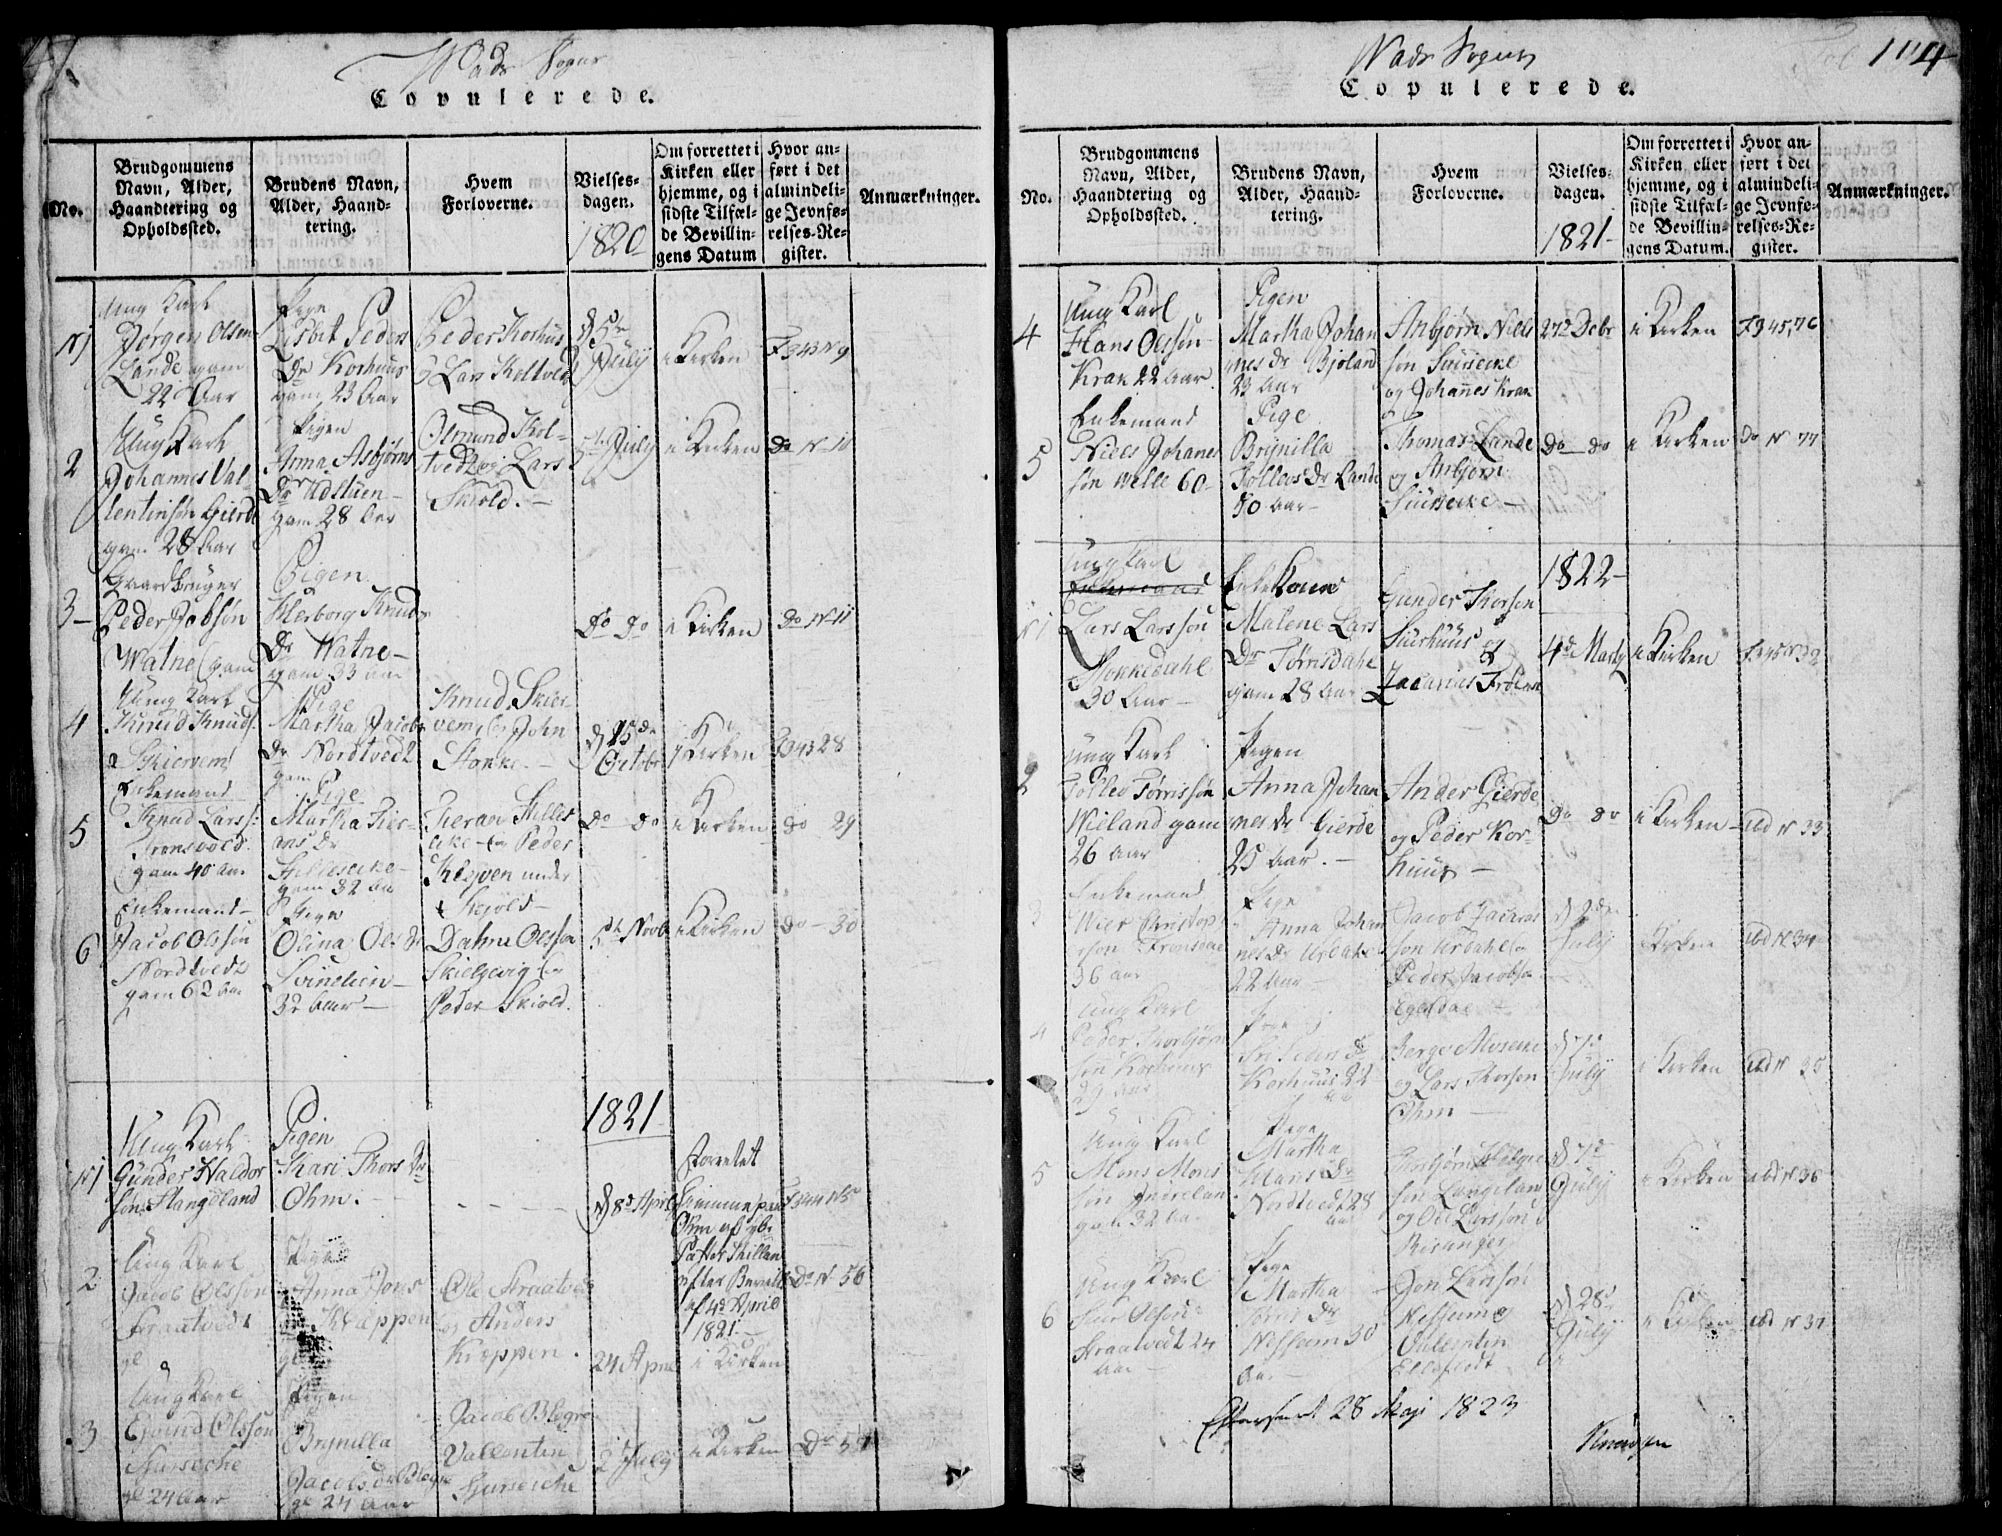 Wads Sogn
Copulerede.
No.
Brudgommens
Navn, Alder,
Haandtering og
Opholdssted.
Brudens Navn,
Alder, Haand-
tering.
Hvem
Forloverne.
Vielses-
dagen.
1820
Om forrettet i
Kirken eller
hjemme, og i
sidste Tilfæl-
de Bevillin-
gens Datum
Hvor an-
ført i det
almindeli-
ge Jevnfø-
relses-Re-
gister.
Anmærkninger.
N 1
Ung Karl
Jørgen Olsen
Lande gam
22 Aar
Pige
Lisbet Peders
Dr Korhuus
gam 23 Aar
Peder Korhuus
Lars Koltved
5te
July
i Kirken
F 343 N 9
2
Ung Karl
Johannes Val-
lentinsøn Gierde
gam 28 Aar
Pigen
Anna Asbjørns
Dr Udstuen
gam 28 Aar
Osmund Kol-
tvedt og Lars
Skiold.
5te July
i Kirken
do N 10
3
Gaardbruger
Peder Jobsøn
Watne gam
Pigen
Herborg Knuds
Dr Watne
gam 33 aar
Do Do
i Kirken
Do N 11
4
Ung Karl
Knud Knuds.
Skiervem
Pige
Martha Jacobs
Dr Nordtvedt
gam
Knud Skier
vem og John
Stonke.
d 15de
Octobr
i Kirken
F 343 28
5
Enkemand
Knud Lars s:
Tronsvold.
gam 40 aar
Pige
Martha Tier-
ans Dr
Stillescike
gam 32 aar
Tieran Stilles
cike og Peder
Klepven under
Skjold
Do Do
i Kirken
do 29
6
Enkemand
Jacob Olssøn
Nordtvedt
gam 62 Aar
Pige
Olina Ols Dr
Svinelien
32 Aar
Dahne Olssøn
Skielgevig og
Peder Skiold.
5te Novb
i Kirken
do 30
1821
N 1
Ung Karl
Gunder Haldor
søn Stangeland
Pigen
Kari Thors Dr
Ohm.
d 8d April
Forrettet
hjemme paa
Ohm af
Pastor
efter Bevill
af 4d April
1821
F 344 N 5
2
Ung Karl
Jacob Olssøn
Straatvedt
Pige
Anna Jons
Dr Kræppen
Ole Straatved
og Anders
Kræppen.
24 April
i Kirken
Do N 56
3
Ung Karl
Eivind Olssøn
Sjurseiche
gl 24 Aar
Pigen
Brynilla
Jacobs dr
gl 24 Aar
Jacob
Vallentin
Sjurseiche
2 July
i Kirken
Do 57
Wads Sogn
Fol 114
Copulerede.
No.
Brudgommens
Navn, Alder,
Haandtering og
Opholdssted.
Brudens Navn,
Alder, Haand-
tering.
Hvem
Forloverne.
Vielses-
dagen.
1821
Om forrettet i
Kirken eller
hjemme, og i
sidste Tilfæl-
de Bevillin-
gens Datum.
Hvor an-
ført i det
almindeli-
ge Jevnfø-
relses-Re-
gister.
Anmærkninger.
4
Ung Karl
Hans Olssøn
Kran 22 Aar.
Pigen
Martha Johan
nes Dr Bjoland
23 Aar
Anbjørn Niels
søn Suurseike
og Johannes Kran
27d Debr
i Kirken
F 345, 76
5
Enkemand
Niels Johanes
søn Welle 60
Pige
Brynilla
Tollevs Dr Lande
50 Aar
Thomas Lande
og Anbjørn
Suurseike
do do
i Kirken
do N 77
1822
N 1
Ung Karl
Enkemand
Lars Larssøn
Mokkedahl
30 Aar
Enke Kone
Malene Lars
Dr Tørnsdahl
gam 28 Aar
Gunder Thorsen
Suurhuus og
Zacarias
4d Marty
i Kirken
F 345 N 32
2
Ung Karl
Tollev Tørrissøn
Wieland gam
26 Aar
Pigen
Anna Johan
nes Dr Gierde
25 Aar.
Ander Gierde
og Peder Kor-
huus
Do do
i Kirken
ibd N 33
3
Enkemand
Wier Christop
ersøn
36 aar
Pige
Anna Johan
nes Dr Urdahl
22 Aar
Jacob Zacarias
søn Urdahl og
Peder Jacobsøn
Egesdal
d 7de
July
i Kirken
ibd N 34
4
Ung Karl
Peder Thorbjørn
søn Korhuus
29 Aar
Pige
Siri Peders Dr
Korhuus 22
Aar
Børge Moseike
og Lars Thorsen
Ohm
d 7d
July
i Kirken
ibd N 35
5
Ung Karl
Mons Mons
søn
gam 32 Aar
Pige
Martha
Hans Dr
Nordtvedt 28
aar
Torbjørn Helge
søn Langeland
og Ole Larssøn
d 7d
July
i Kirken
ibd N 36
6
Ung Karl
Siur Olssøn
Straatvedt 24
Aar
Pige
Martha
Dr
Nesheim 30
Aar
Jon Larssøn
Nesheim og
Valentin
d 28d
July
i Kirken
ibd N 37
Efterseet 28 Maji 1823